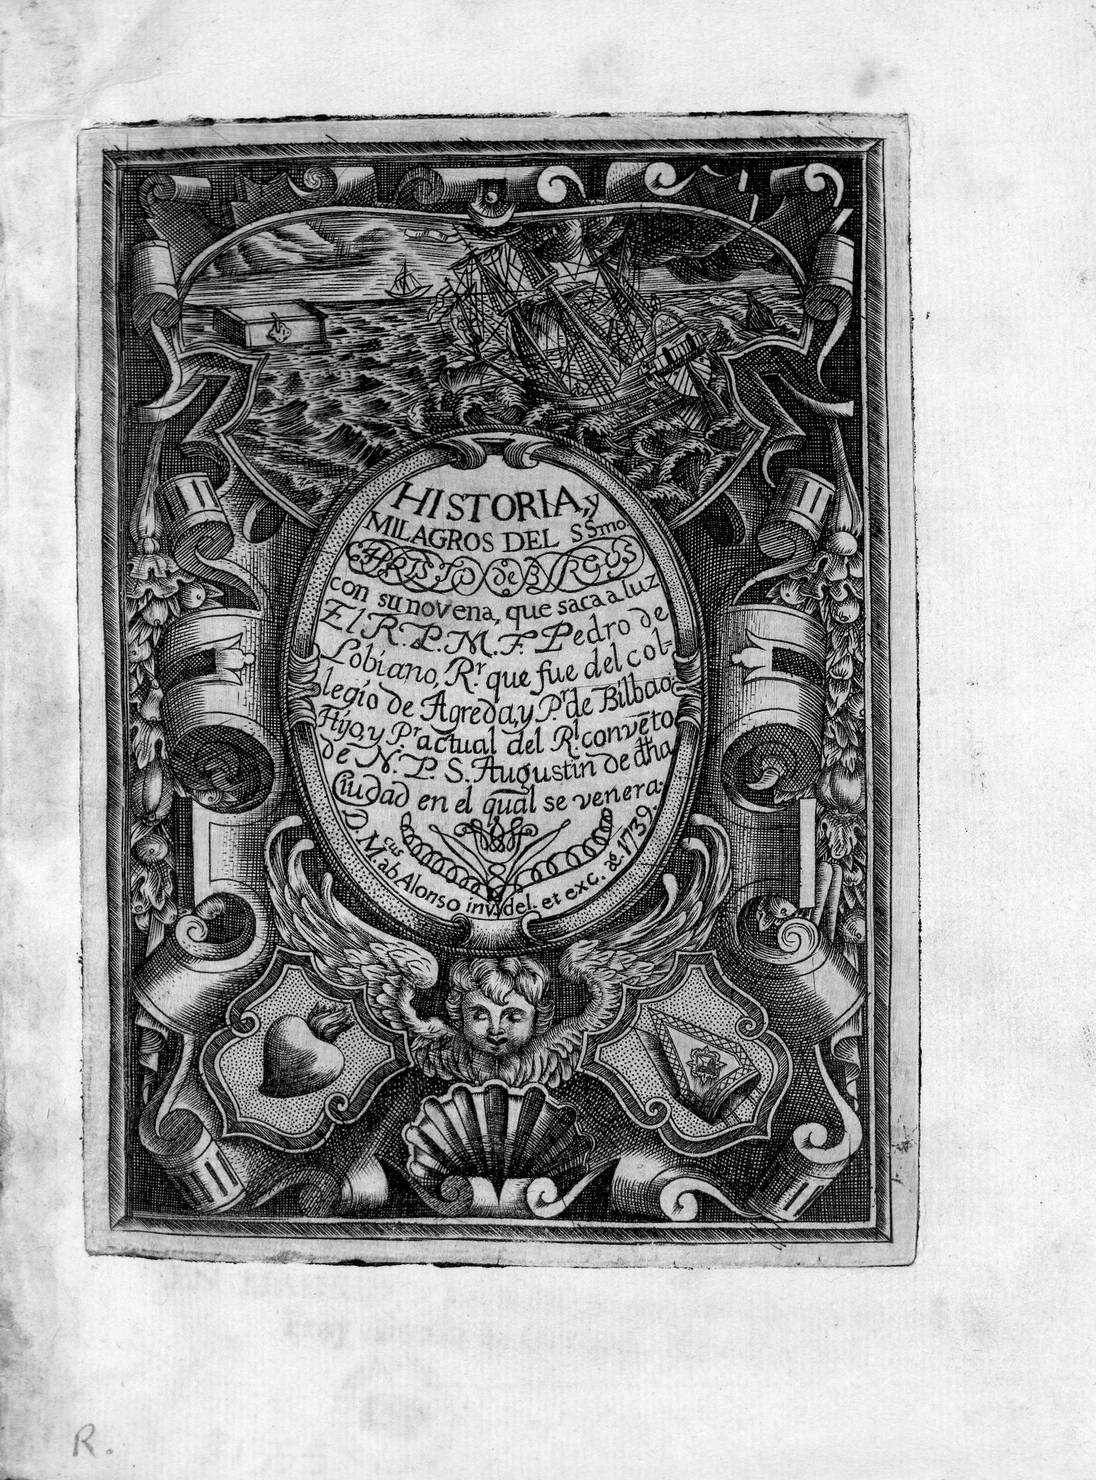 HISTORIA, y
MILAGROS DEL SSmo
CHRISTO de BVRGOS
con su novena, que saca a luz
El R. P. M. F. Pedro de
Lobiano, Rr que fue del col-
legio de Agreda, y Pr de Bilbao:
Hijo, y Pr actual del Rl convēto
de N. P. S. Augustin de dha
Ciudad en el qual se venera.
D. Mcus ab Alonso inv. del. et exc. ao. 1739.
R.